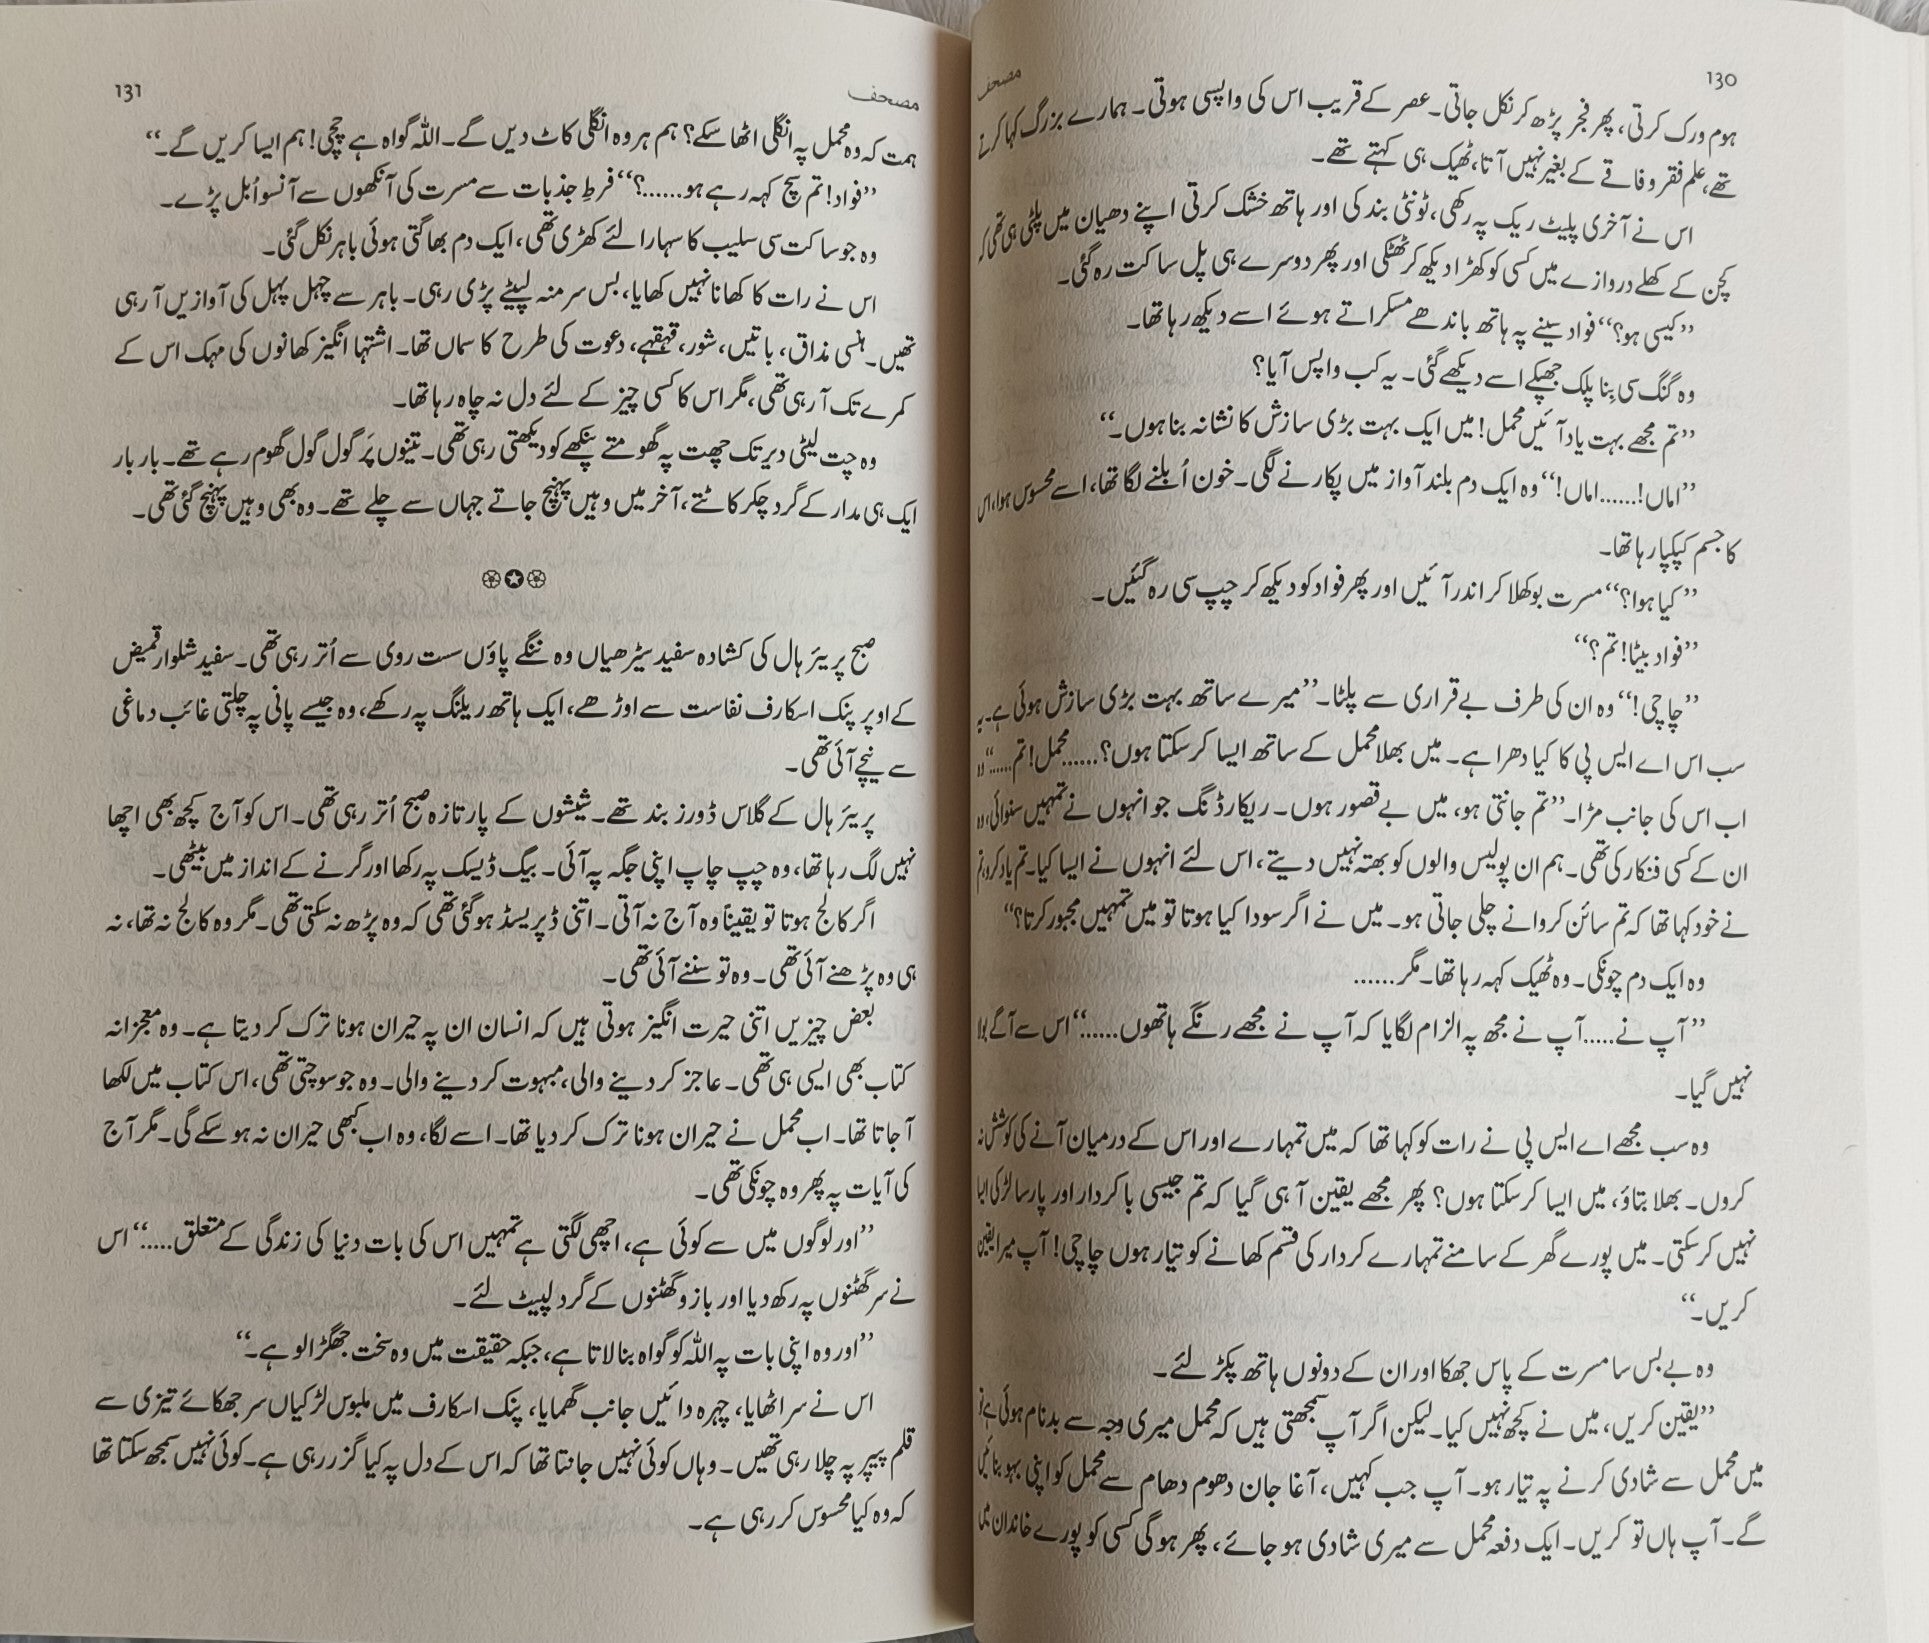 130
مصحف
ہوم ورک کرتی، پھر فجر پڑھ کر نکل جاتی۔ عصر کے قریب اس کی واپسی ہوتی۔ ہمارے بزرگ کہا کرتے
تھے، علم فقر و فاقے کے بغیر نہیں آتا، ٹھیک ہی کہتے تھے۔
اس نے آخری پلیٹ ریک پہ رکھی، ٹونٹی بند کی اور ہاتھ خشک کرتی اپنے دھیان میں پلٹی ہی تھی کہ
کچن کے کھلے دروازے میں کسی کو کھڑا دیکھ کر ٹھٹکی اور پھر دوسرے ہی پل ساکت رہ گئی۔
’’کیسی ہو؟‘‘ فواد سینے پہ ہاتھ باندھے مسکراتے ہوئے اسے دیکھ رہا تھا۔
وہ گنگ سی بِنا پلک جھپکے اسے دیکھے گئی۔ یہ کب واپس آیا؟
’’تم مجھے بہت یاد آئیں محمل! میں ایک بہت بڑی سازش کا نشانہ بنا ہوں۔‘‘
’’اماں!......اماں!‘‘ وہ ایک دم بلند آواز میں پکارنے لگی۔ خون اُبلنے لگا تھا، اسے محسوس ہوا، اس
کا جسم کپکپا رہا تھا۔
’’کیا ہوا؟‘‘ مسرت بوکھلا کر اندر آئیں اور پھر فواد کو دیکھ کر چپ سی رہ گئیں۔
’’فواد بیٹا! تم؟‘‘
’’چاچی!‘‘ وہ ان کی طرف بے قراری سے پلٹا۔ ’’میرے ساتھ بہت بڑی سازش ہوئی ہے۔ یہ
سب اس اے ایس پی کا کیا دھرا ہے۔ میں بھلا محمل کے ساتھ ایسا کر سکتا ہوں؟......محمل! تم......‘‘ وہ
اب اس کی جانب مڑا۔ ’’تم جانتی ہو، میں بے قصور ہوں۔ ریکارڈنگ جو انہوں نے تمہیں سنوائی، وہ
ان کے کسی فنکار کی تھی۔ ہم ان پولیس والوں کو بھتہ نہیں دیتے، اس لئے انہوں نے ایسا کیا۔ تم یاد کرو، تم
نے خود کہا تھا کہ تم سائن کروانے چلی جاتی ہو۔ میں نے اگر سودا کیا ہوتا تو میں تمہیں مجبور کرتا؟‘‘
وہ ایک دم چونکی۔ وہ ٹھیک کہہ رہا تھا۔ مگر......
’’آپ نے.....آپ نے مجھ پہ الزام لگایا کہ آپ نے مجھے رنگے ہاتھوں......‘‘ اس سے آگے بولا
نہیں گیا۔
وہ سب مجھے اے ایس پی نے رات کو کہا تھا کہ میں تمہارے اور اس کے درمیان آنے کی کوشش نہ
کروں۔ بھلا بتاؤ، میں ایسا کر سکتا ہوں؟ پھر مجھے یقین آ ہی گیا کہ تم جیسی باکردار اور پارسا لڑکی ایسا
نہیں کر سکتی۔ میں پورے گھر کے سامنے تمہارے کردار کی قسم کھانے کو تیار ہوں چاچی! آپ میرا یقین
کریں۔‘‘
وہ بے بس سا مسرت کے پاس جھکا اور ان کے دونوں ہاتھ پکڑ لئے۔
’’یقین کریں، میں نے کچھ نہیں کیا۔ لیکن اگر آپ سمجھتی ہیں کہ محمل میری وجہ سے بدنام ہوئی ہے تو
میں محمل سے شادی کرنے پہ تیار ہو۔ آپ جب کہیں، آغا جان دھوم دھام سے محمل کو اپنی بہو بنائیں
گے۔ آپ ہاں تو کریں۔ ایک دفعہ محمل سے میری شادی ہو جائے، پھر ہوگی کسی کو پورے خاندان میں
131
مصحف
ہمت کہ وہ محمل پہ انگلی اٹھا سکے؟ ہم ہر وہ انگلی کاٹ دیں گے۔ اللہ گواہ ہے چچی! ہم ایسا کریں گے۔‘‘
’’فواد! تم سچ کہہ رہے ہو......؟‘‘ فرطِ جذبات سے مسرت کی آنکھوں سے آنسو اُبل پڑے۔
وہ جو ساکت سی سلیب کا سہارا لئے کھڑی تھی، ایک دم بھاگتی ہوئی باہر نکل گئی۔
اس نے رات کا کھانا نہیں کھایا، بس سر منہ لپیٹے پڑی رہی۔ باہر سے چہل پہل کی آوازیں آ رہی
تھیں۔ ہنسی مذاق، باتیں، شور، قہقہے، دعوت کی طرح کا سماں تھا۔ اشتہا انگیز کھانوں کی مہک اس کے
کمرے تک آ رہی تھی، مگر اس کا کسی چیز کے لئے دل نہ چاہ رہا تھا۔
وہ چت لیٹی دیر تک چھت پہ گھومتے پنکھے کو دیکھتی رہی تھی۔ تینوں پَر گول گول گھوم رہے تھے۔ بار بار
ایک ہی مدار کے گرد چکر کاٹتے، آخر میں وہیں پہنچ جاتے جہاں سے چلے تھے۔ وہ بھی وہیں پہنچ گئی تھی۔
صبح پریئر ہال کی کشادہ سفید سیڑھیاں وہ ننگے پاؤں سست روی سے اُتر رہی تھی۔ سفید شلوار قمیض
کے اوپر پنک اسکارف نفاست سے اوڑھے، ایک ہاتھ ریلنگ پہ رکھے، وہ جیسے پانی پہ چلتی غائب دماغی
سے نیچے آئی تھی۔
پریئر ہال کے گلاس ڈورز بند تھے۔ شیشوں کے پار تازہ صبح اُتر رہی تھی۔ اس کو آج کچھ بھی اچھا
نہیں لگ رہا تھا، وہ چپ چاپ اپنی جگہ پہ آئی۔ بیگ ڈیسک پہ رکھا اور گرنے کے انداز میں بیٹھی۔
اگر کالج ہوتا تو یقیناً وہ آج نہ آتی۔ اتنی ڈپریسڈ ہو گئی تھی کہ وہ پڑھ نہ سکتی تھی۔ مگر وہ کالج نہ تھا، نہ
ہی وہ پڑھنے آئی تھی۔ وہ تو سننے آئی تھی۔
بعض چیزیں اتنی حیرت انگیز ہوتی ہیں کہ انسان ان پہ حیران ہونا ترک کر دیتا ہے۔ وہ معجزانہ
کتاب بھی ایسی ہی تھی۔ عاجز کر دینے والی، مبہوت کر دینے والی۔ وہ جو سوچتی تھی، اس کتاب میں لکھا
آ جاتا تھا۔ اب محمل نے حیران ہونا ترک کر دیا تھا۔ اسے لگا، وہ اب کبھی حیران نہ ہو سکے گی۔ مگر آج
کی آیات پہ پھر وہ چونکی تھی۔
’’اور لوگوں میں سے کوئی ہے، اچھی لگتی ہے تمہیں اس کی بات دنیا کی زندگی کے متعلق.....‘‘ اس
نے سر گھٹنوں پہ رکھ دیا اور بازو گھٹنوں کے گرد لپیٹ لئے۔
’’اور وہ اپنی بات پہ اللہ کو گواہ بنا لاتا ہے، جبکہ حقیقت میں وہ سخت جھگڑالو ہے۔‘‘
اس نے سر اٹھایا، چہرہ دائیں جانب گھمایا، پنک اسکارف میں ملبوس لڑکیاں سر جھکائے تیزی سے
قلم پیپر پہ چلا رہی تھیں۔ وہاں کوئی نہیں جانتا تھا کہ اس کے دل پہ کیا گزر رہی ہے۔ کوئی نہیں سمجھ سکتا تھا
کہ وہ کیا محسوس کر رہی ہے۔